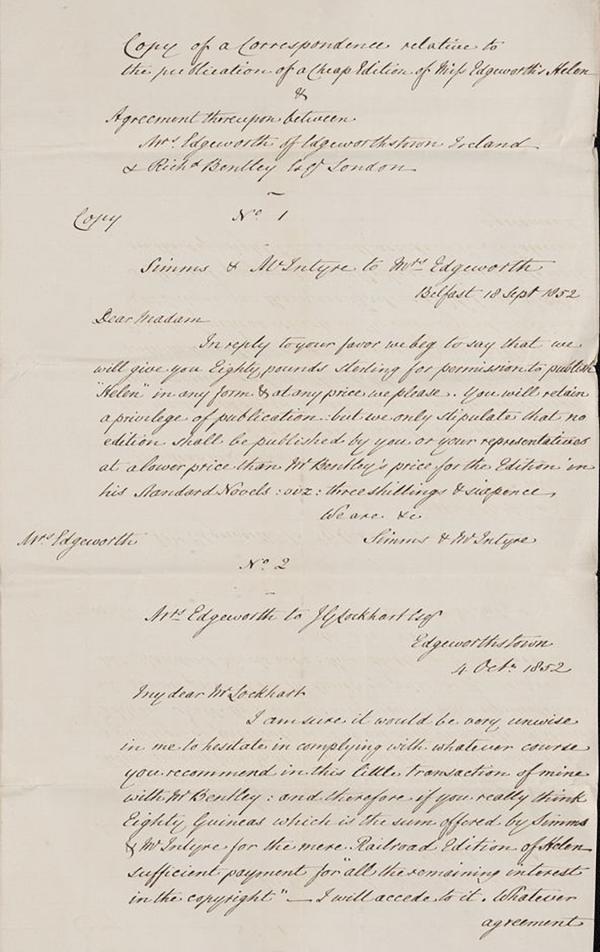 Copy of a Correspondence relative to
the publication of a Cheap Edition of Miss Edgeworth's Helen
&
Agreement thereupon between
Mrs Edgeworth of Edgeworthstown Ireland
& Richd Bentley Esqr London
Copy No 1
Simms & McIntyre to Mrs Edgeworth
Belfast 18 Sept 1852
Dear Madam
In reply to your favor we beg to say that we
will give you Eighty pounds sterling for permission to publish
"Helen" in any form & at any price we please. You will retain
a privilege of publication: but we only stipulate that no
edition shall be published by you or your representatives
at a lower price than Mr Bentley's price for the Edition in
his Standard Novels: viz: three shillings & sixpence,
We are &c
Mrs Edgeworth Simms & McIntyre
No 2
Mrs Edgeworth to J G Lockhart Esqr
Edgeworthstown
4 Octr 1852
My dear Mr Lockhart
I am sure it would be very unwise
in me to hesitate in complying with whatever course
you recommend in this little transaction of mine
with Mr Bentley: and therefore if you really think
Eighty Guineas which is the sum offered by Simms
& McIntyre for the mere Railroad Edition of Helen
sufficient payment for "all the remaining interest
in the copyright" — I will accede to it. Whatever
agreement